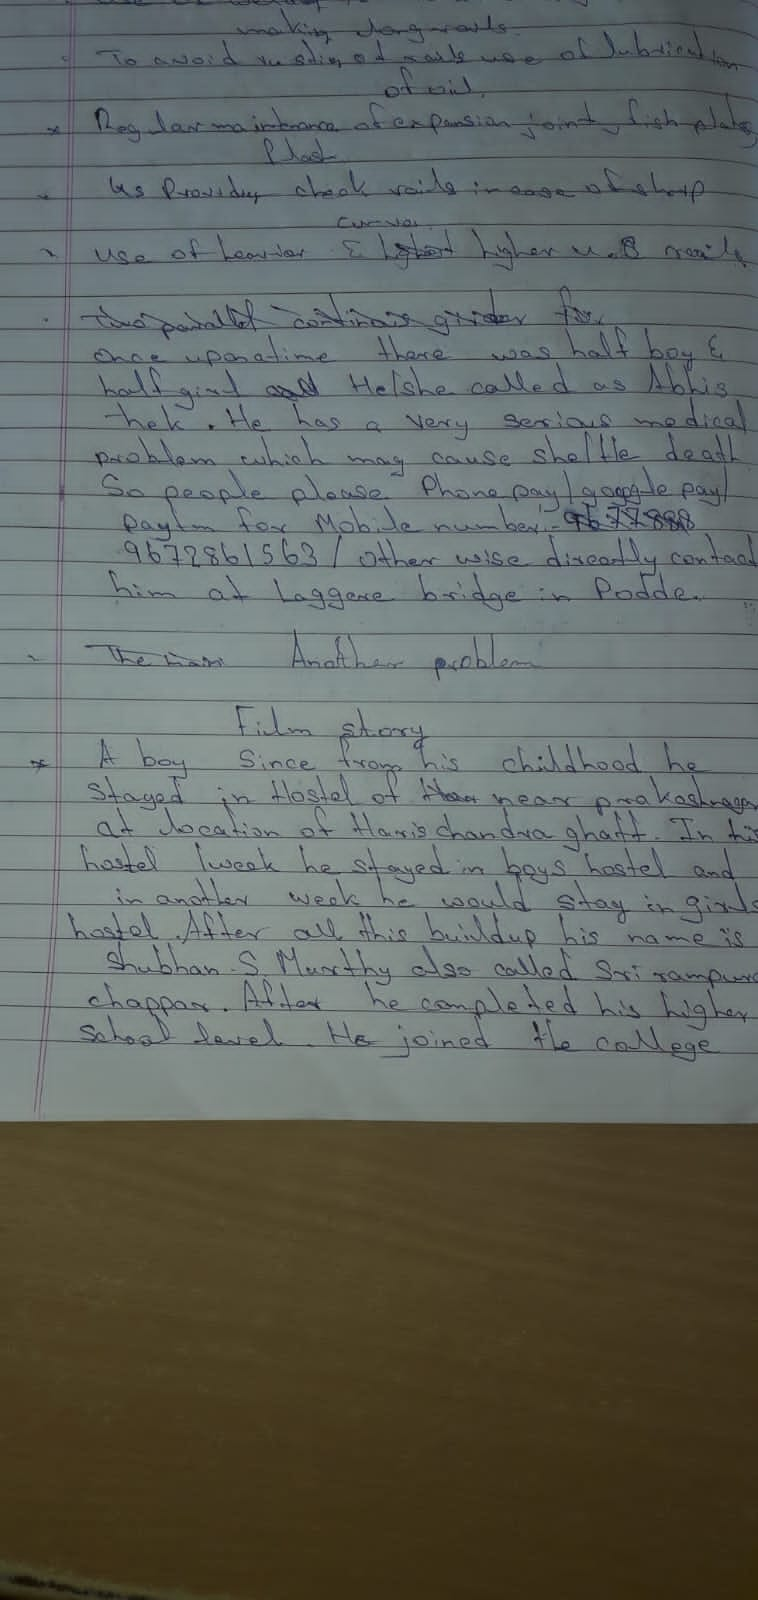 making long rails.
To avoid rusting of rails use of lubrication
of oil.
* Regular maintenance of expansion joint, fish plates,
* Us Providing check rails in case of sharp
curve.
use of heavier & higher rails
Two parallel continous girder for
once upon a time there was half boy &
half girl and He/she called as Abhis
hek. He has a very serious medical
problem which may cause she/He death
So people please Phone pay/google pay/
paytm for Mobile number:-
9672861563/ other wise direcatly contact
him at Laggere bridge in Podde.
The Another problem
Film story
* A boy Since from his childhood he
stayed in Hostel of near prakashnagar
at location of Harischandra ghatt. In his
hostel 1week he stayed in boys hostel and
in another week he would stay in girls
hostel. After all this buildup his name is
Shubhan. S. Murthy also called Sri rampura
chappar. After he completed his higher
school level. He joined the college